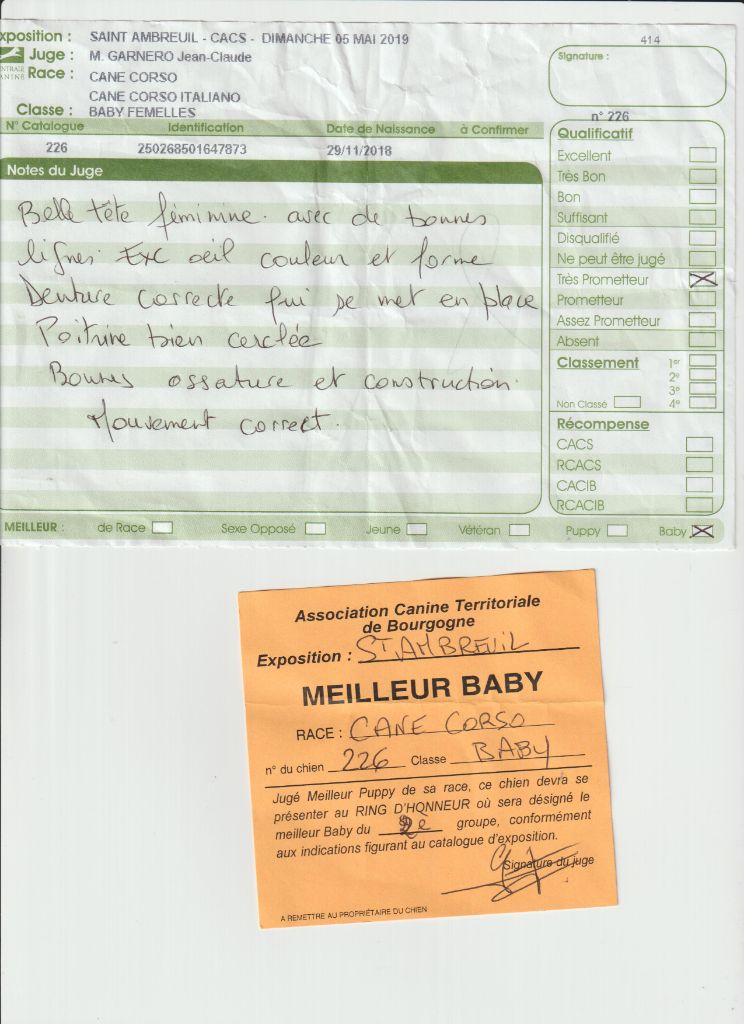 xposition : SAINT AMBREUIL - CACS - DIMANCHE 05 MAI 2019
414
Juge : M. GARNERO Jean-Claude
Race : CANE CORSO
CANE CORSO ITALIANO
Classe : BABY FEMELLES
Signature :
n° 226
N° Catalogue Identification Date de Naissance à Confirmer
226 250268501647873 29/11/2018
Notes du Juge
Belle tête féminine. avec de bonnes
lignes Exc oeil couleur et forme
Denture correcte qui se met en place
Poitrine bien cerclée
Bonnes ossature et construction.
Mouvement correct.
Qualificatif
Excellent
Très Bon
Bon
Suffisant
Disqualifié
Ne peut être jugé
Très Prometteur
Prometteur
Assez Prometteur
Absent
Classement 1er
2e
3e
Non Classé 4e
Récompense
CACS
RCACS
CACIB
RCACIB
MEILLEUR : de Race Sexe Opposé Jeune Vétéran Puppy Baby
Association Canine Territoriale
de Bourgogne
Exposition : ST AMBREUIL
MEILLEUR BABY
RACE : CANE CORSO
n° du chien 226 Classe BABY
Jugé Meilleur Puppy de sa race, ce chien devra se
présenter au RING D'HONNEUR où sera désigné le
meilleur Baby du 2è groupe, conformément
aux indications figurant au catalogue d'exposition.
Signature du juge
A REMETTRE AU PROPRIÉTAIRE DU CHIEN